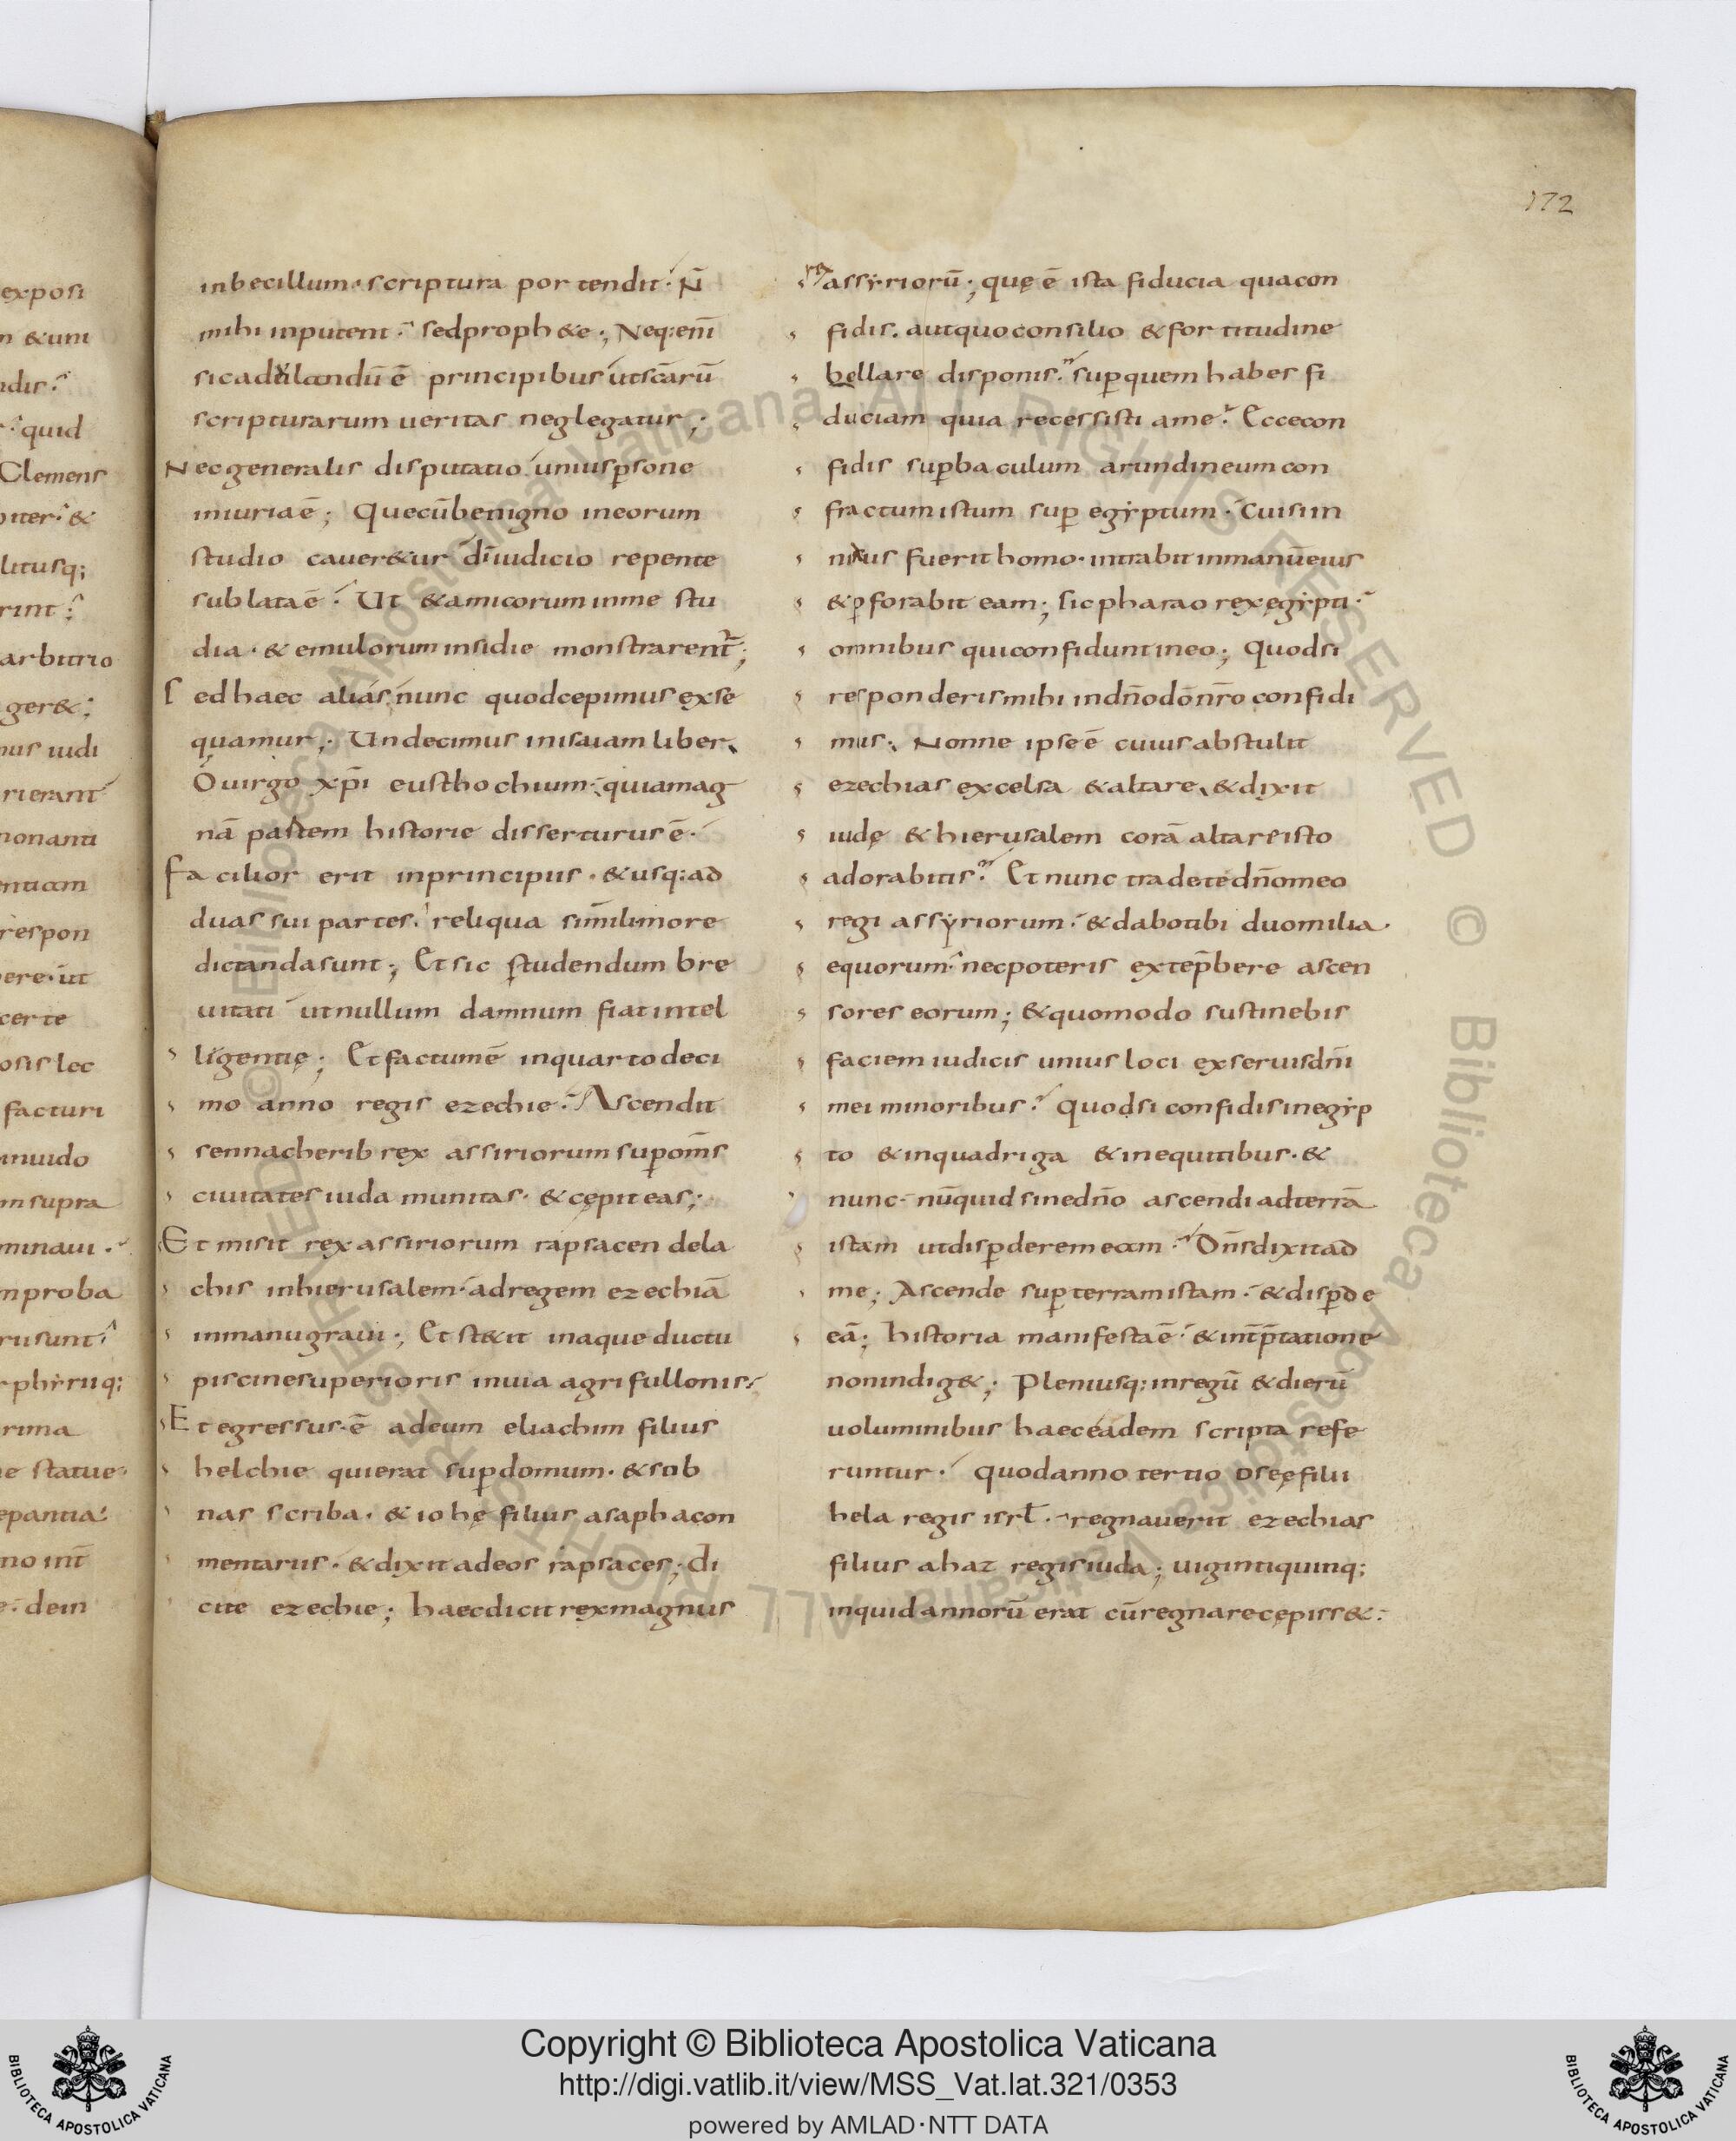 172
exposi
n &uni
ndis.
quid
Clemens
piter. &
litusq;
rint;
arbitrio
ger&;
nus iudi
rierant
nonanti
entiam
respon
ere. ut
certe
osis lec
facturi
inuido
m supra
minaui.
mproba
rusunt.
rphiriiq;
rima
e statue
epantia.
no int̄
e. dein
inbecillum. scriptura portendit. N̄
mihi inputent. sed proph&e; Neq: enī
sic adulandū ē principibus ut sc̄arū
scripturarum ueritas neglegatur;
Nec generalis disputatio unius ꝑsone
iniuria ē; Que cū benigno meorum
studio cauer&ur dī iudicio repente
sublata ē. Ut & amicorum in me stu
dia. & emulorum insidie monstrarent̄;
Sed haec alias. nunc quod cepimus exse
quamur; Undecimus in isaiam liber
O uirgo xp̄i eusthochium. quia mag
nā partem historie disserturus ē.
Facilior erit in principiis. & usq: ad
duas sui partes. reliqua simili more
dictanda sunt; Et sic studendum bre
uitati ut nullum damnum fiat intel
ligentię; Et factum ē in quarto deci
mo anno regis ezechie. Ascendit
sennacherib rex assiriorum suꝑ om̄s
ciuitates iuda munitas. & cępit eas;
Et misit rex assiriorum rapsacen de la
chis in hierusalem. ad regem ezechiā
in manu graui; Et st&it in aque ductu
piscine superioris in uia agri fullonis.
Et egressus. ē ad eum eliachim filius
helchie qui erat suꝑ domum. & sob
nas scriba. & iohę filius asaph acon
mentarus. & dixit ad eos rapsaces; di
cite ezechie; haec dicit rex magnus
rex assyriorū; quę ē ista fiducia qua con
fidis. aut quo consilio & fortitudine
bellare disponis. suꝑ quem habes fi
duciam quia recessisti a me. Ecce con
fidis suꝑ baculum arundineum con
fractum istum suꝑ egyptum. Cui si in
nixus fuerit homo. intrabit in manū eius
& ꝑforabit eam; sic pharao rex egypti.
omnibus qui confidunt in eo; Quod si
responderis mihi in dn̄o dō nr̄o confidi
mus. Nonne ipse ē cuius abstulit
ezechias excelsa & altare, & dixit
iudę & hierusalem corā altari isto
adorabitis. Et nunc trade te dn̄o meo
regi assyriorum. & dabo tibi duo milia.
equorum. nec poteris ex te p̄bere ascen
sores eorum; & quomodo sustinebis
faciem iudicis unius loci ex seruis dn̄i
mei minoribus. Quod si confidis in egyp
to & in quadriga & in equitibus. &
nunc. nūquid sine dn̄o ascendi ad terrā
istam ut disꝑderem eam. Dn̄s dixit ad
me; Ascende suꝑ terram istam. & disꝑde
eā; historia manifesta ē. & int̄p̄tatione
non indig&; Pleniusq: in regū & dierū
uoluminibus haec eadem scripta refe
runtur. Quod anno tertio oseę filii
hela regis isrł. regnauerit ezechias
filius ahaz regis iuda; uiginti quinq;
inquid annorū erat cū regnare cępiss&.
Copyright © Biblioteca Apostolica Vaticana
http://digi.vatlib.it/view/MSS_Vat.lat.321/0353
powered by AMLAD·NTT DATA
BIBLIOTECA APOSTOLICA VATICANA
BIBLIOTECA APOSTOLICA VATICANA